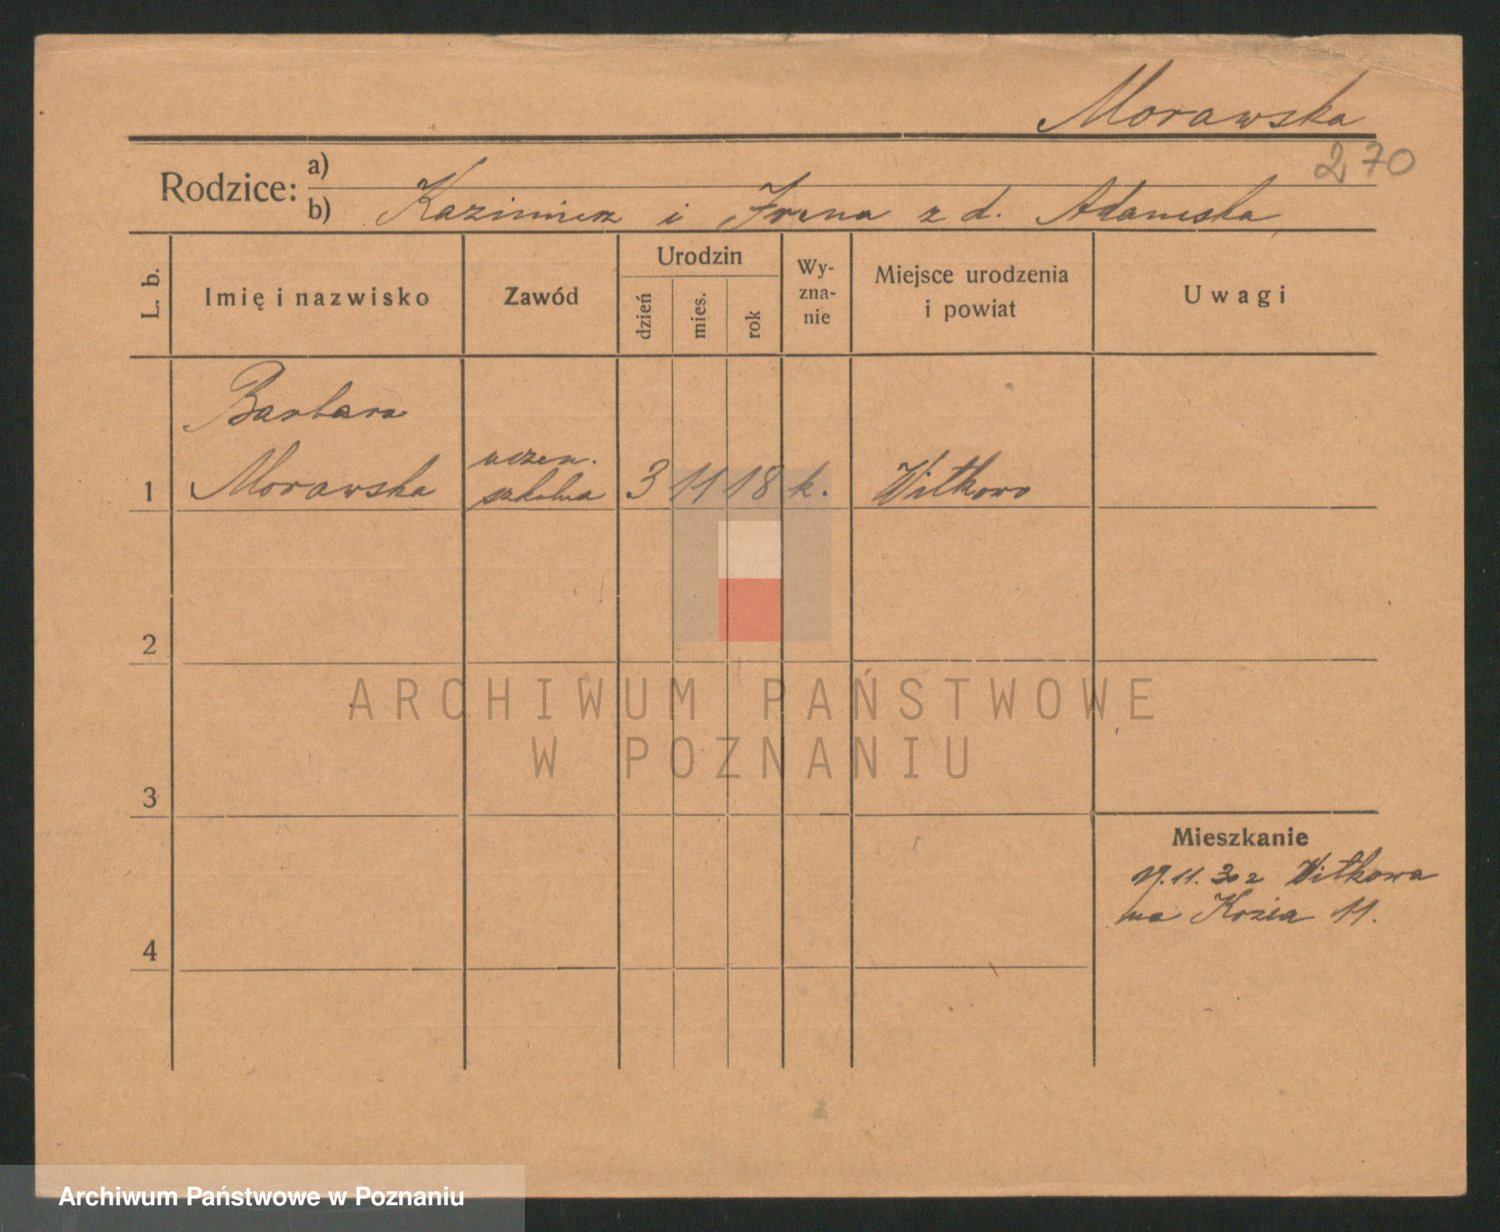 Morawska
270
Rodzice: a)
b) Kazimierz i Irena z d. Adamska
L. b.
Imię i nazwisko
Zawód
Urodzin
dzień
mies.
rok
Wy-
zna-
nie
Miejsce urodzenia
i powiat
Uwagi
Barbara
1 Morawska
uczen.
szkolna
3 11 18 k. Witkowo
2
3
4
Mieszkanie
19.11.30 z Witkowa
na Kozia 11.
ARCHIWUM PAŃSTWOWE
W POZNANIU
Archiwum Państwowe w Poznaniu